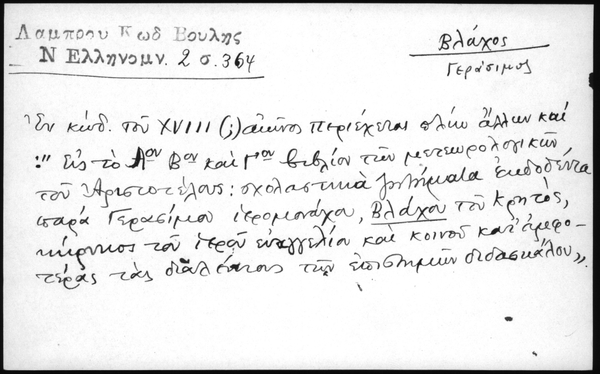 Λαμπρου Κωδ Βουλης
Ν Ελληνομν. 2 σ. 364
Βλάχος
Γεράσιμος
Ἐν κώδ. τοῦ XVIII (;) αἰῶνος περιέχεται πλὴν ἄλλων καὶ
:" Εἰς τὸ Αον Βον καὶ Γιον βιβλίον τῶν μετεωρολογικῶν
τοῦ Ἀριστοτέλους: σχολαστικὰ ζητήματα ἐκδοθέντα
παρὰ Γερασίμου ἱερομονάχου, Βλάχου τοῦ Κρητός,
κήρυκος τοῦ ἱεροῦ εὐαγγελίου καὶ κοινοῦ κατ' ἀμφο-
τέρας τὰς διαλέκτους τῶν ἐπιστημῶν διδασκάλου».